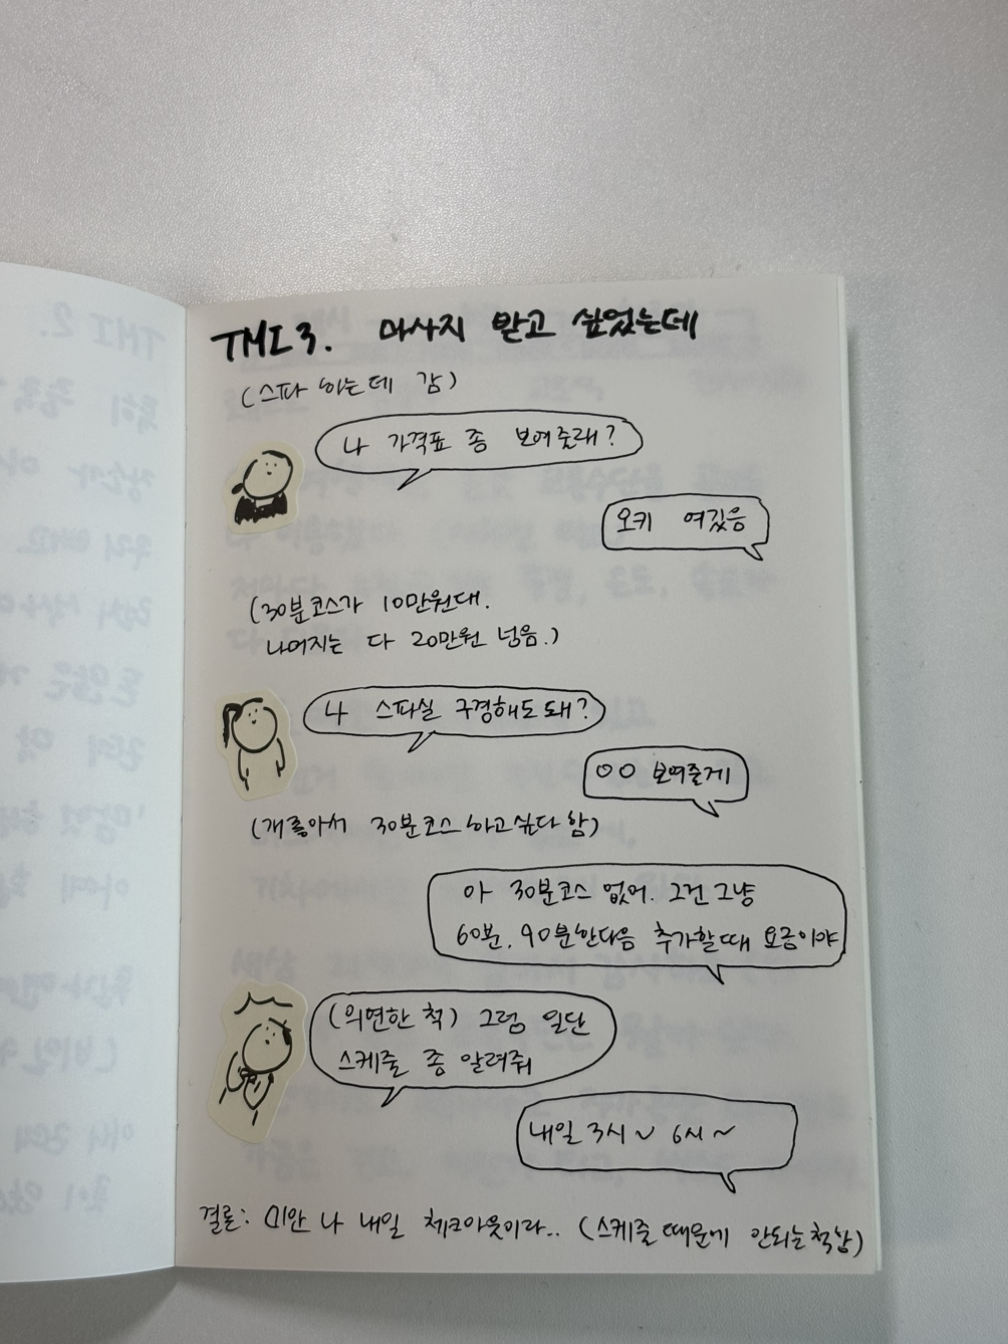 TMI 3. 마사지 받고 싶었는데
(스파 하는데 감)
나 가격표 좀 보여줄래?
오키 여깄음
(30분코스가 10만원대.
나머지는 다 20만원 넘음.)
나 스파실 구경해도 돼?
ㅇㅇ 보여줄게
(개좋아서 30분코스 하고싶다 함)
아 30분코스 없어. 그건 그냥
60분, 90분 한다음 추가할때 요금이야
(의연한 척) 그럼 일단
스케줄 좀 알려줘
내일 3시~ 6시~
결론: 미안 나 내일 체크아웃이라.. (스케줄 때문에 안되는척함)